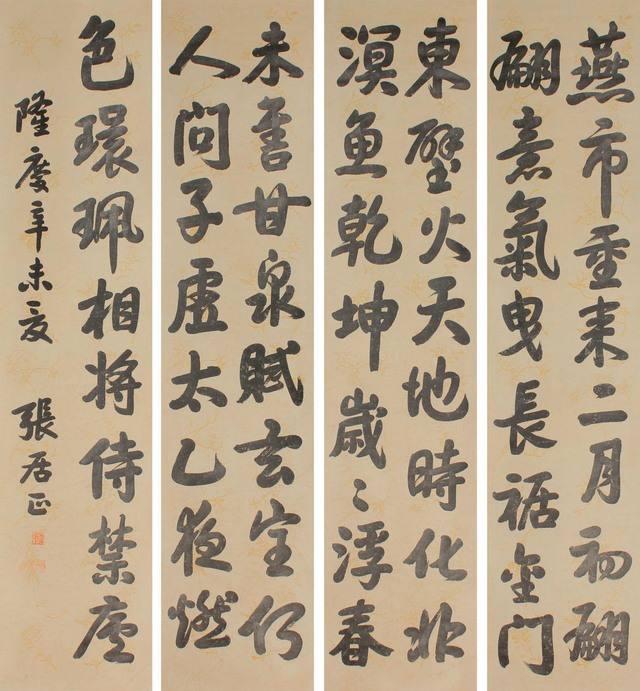 燕市重来二月初翩
翩意氣曳長裾金門
東壁火天地時化北
溟魚乾坤歲〻浮春
未售甘泉賦玄室何
人問子虛太乙夜燃
色環珮相將侍禁廬
隆慶辛未夏 張居正